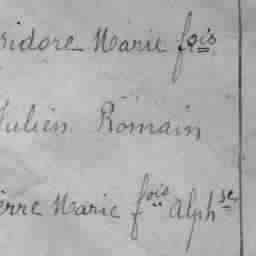 sidore Marie fois
Julien Romain
ierre Marie fois Alphse